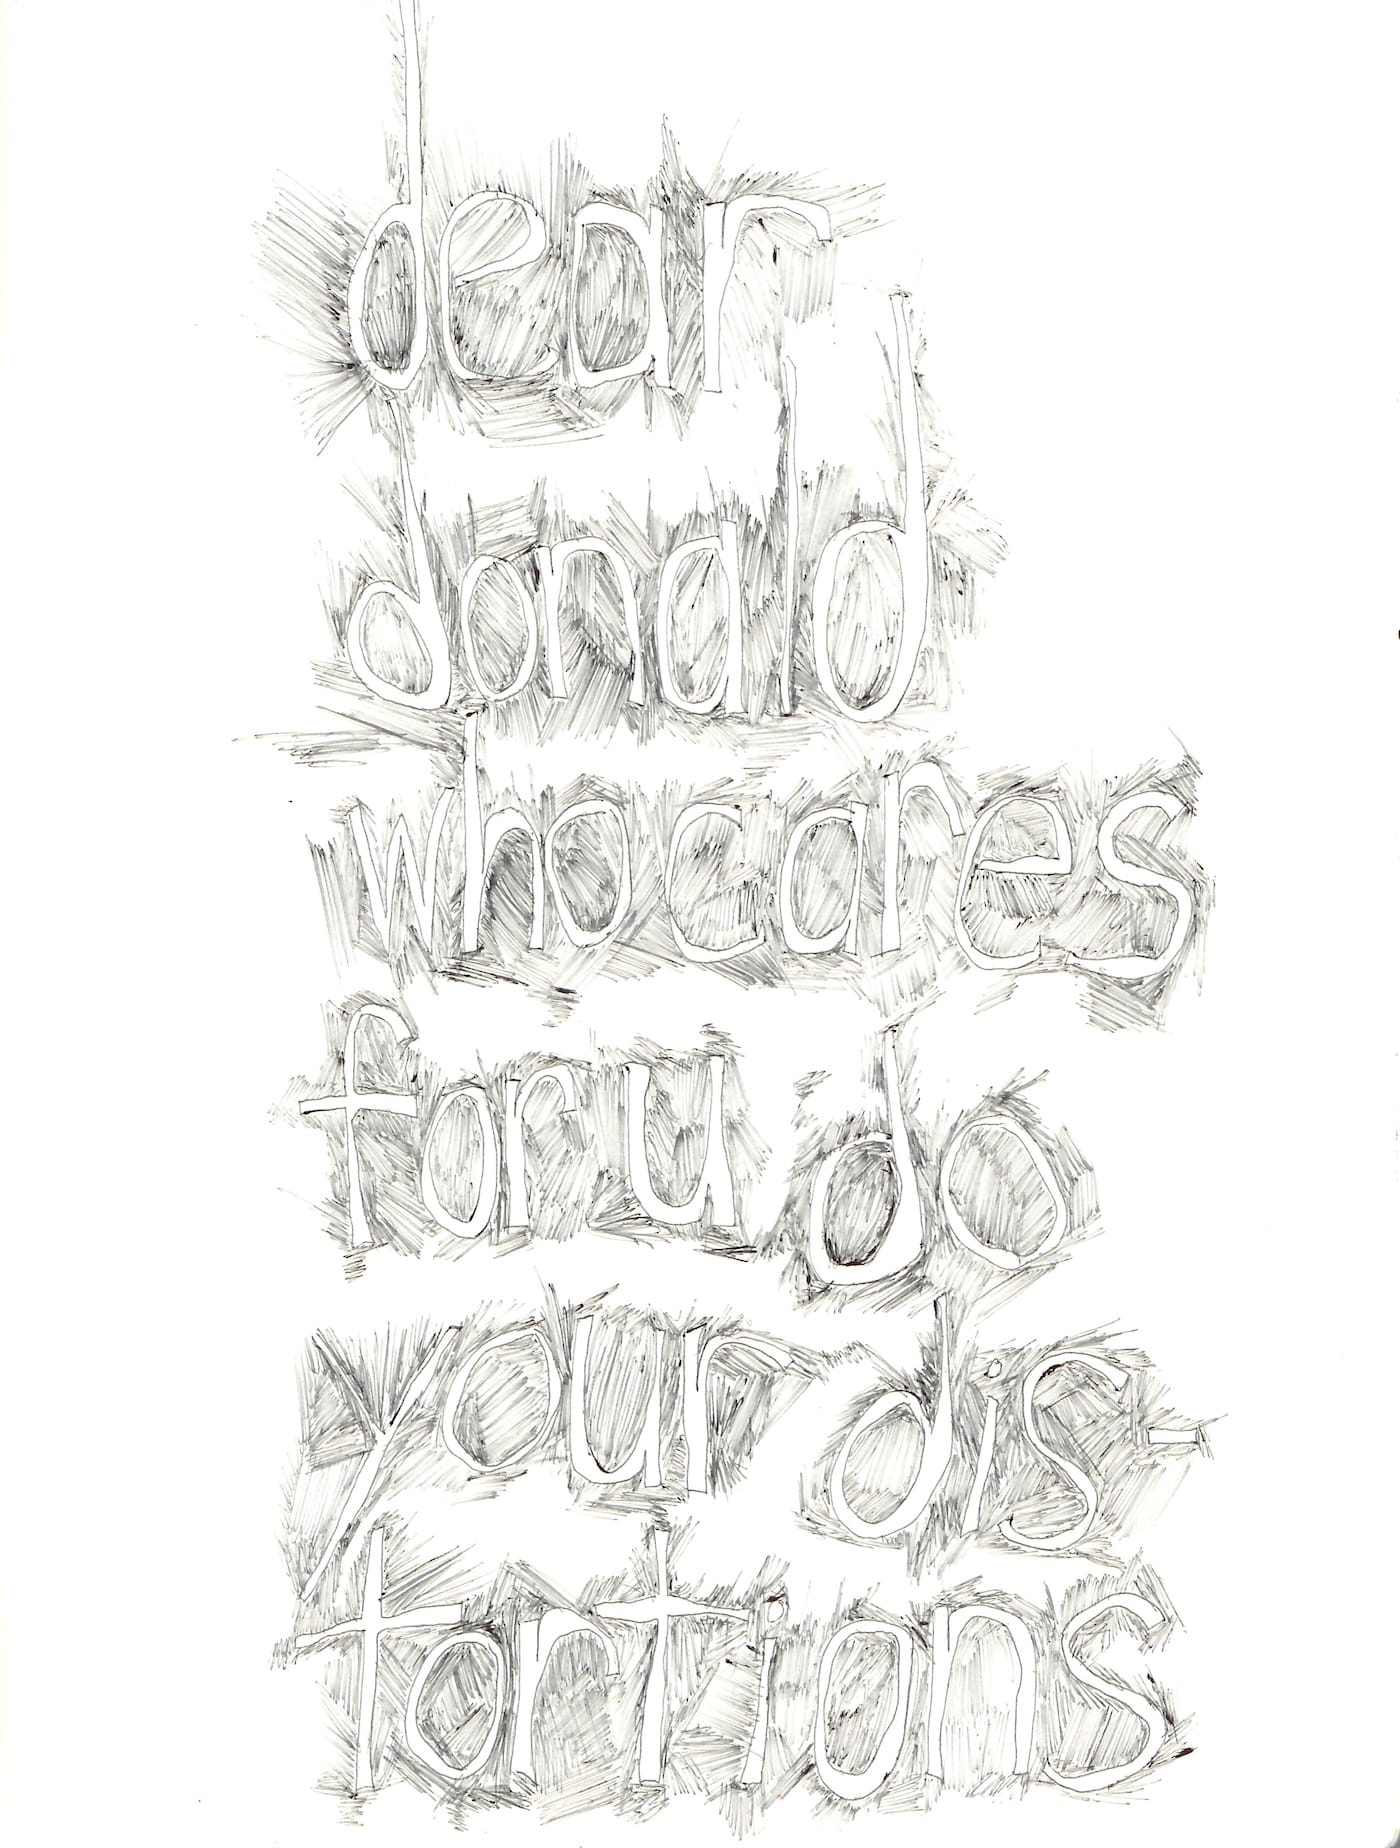 dear
donald
who cares
for u do
your dis-
tortions